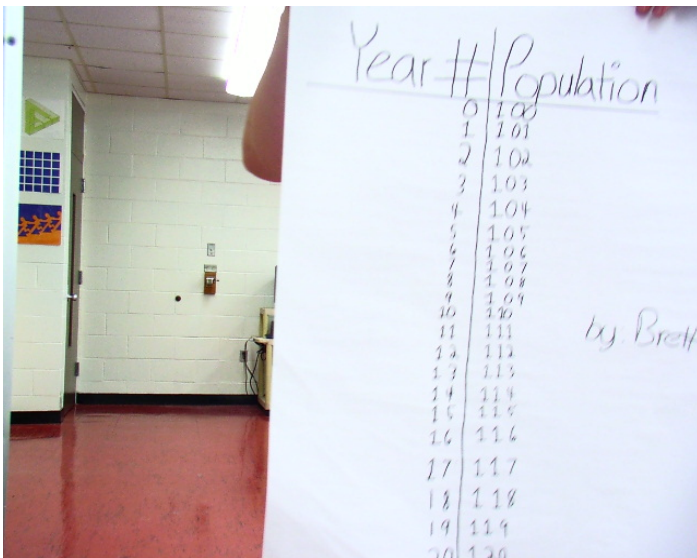 Year # Population
0 100
1 101
2 102
3 103
4 104
5 105
6 106
7 107
8 108
9 109
10 110
11 111
12 112
13 113
14 114
15 115
16 116
17 117
18 118
19 119
20 120
by. Brett